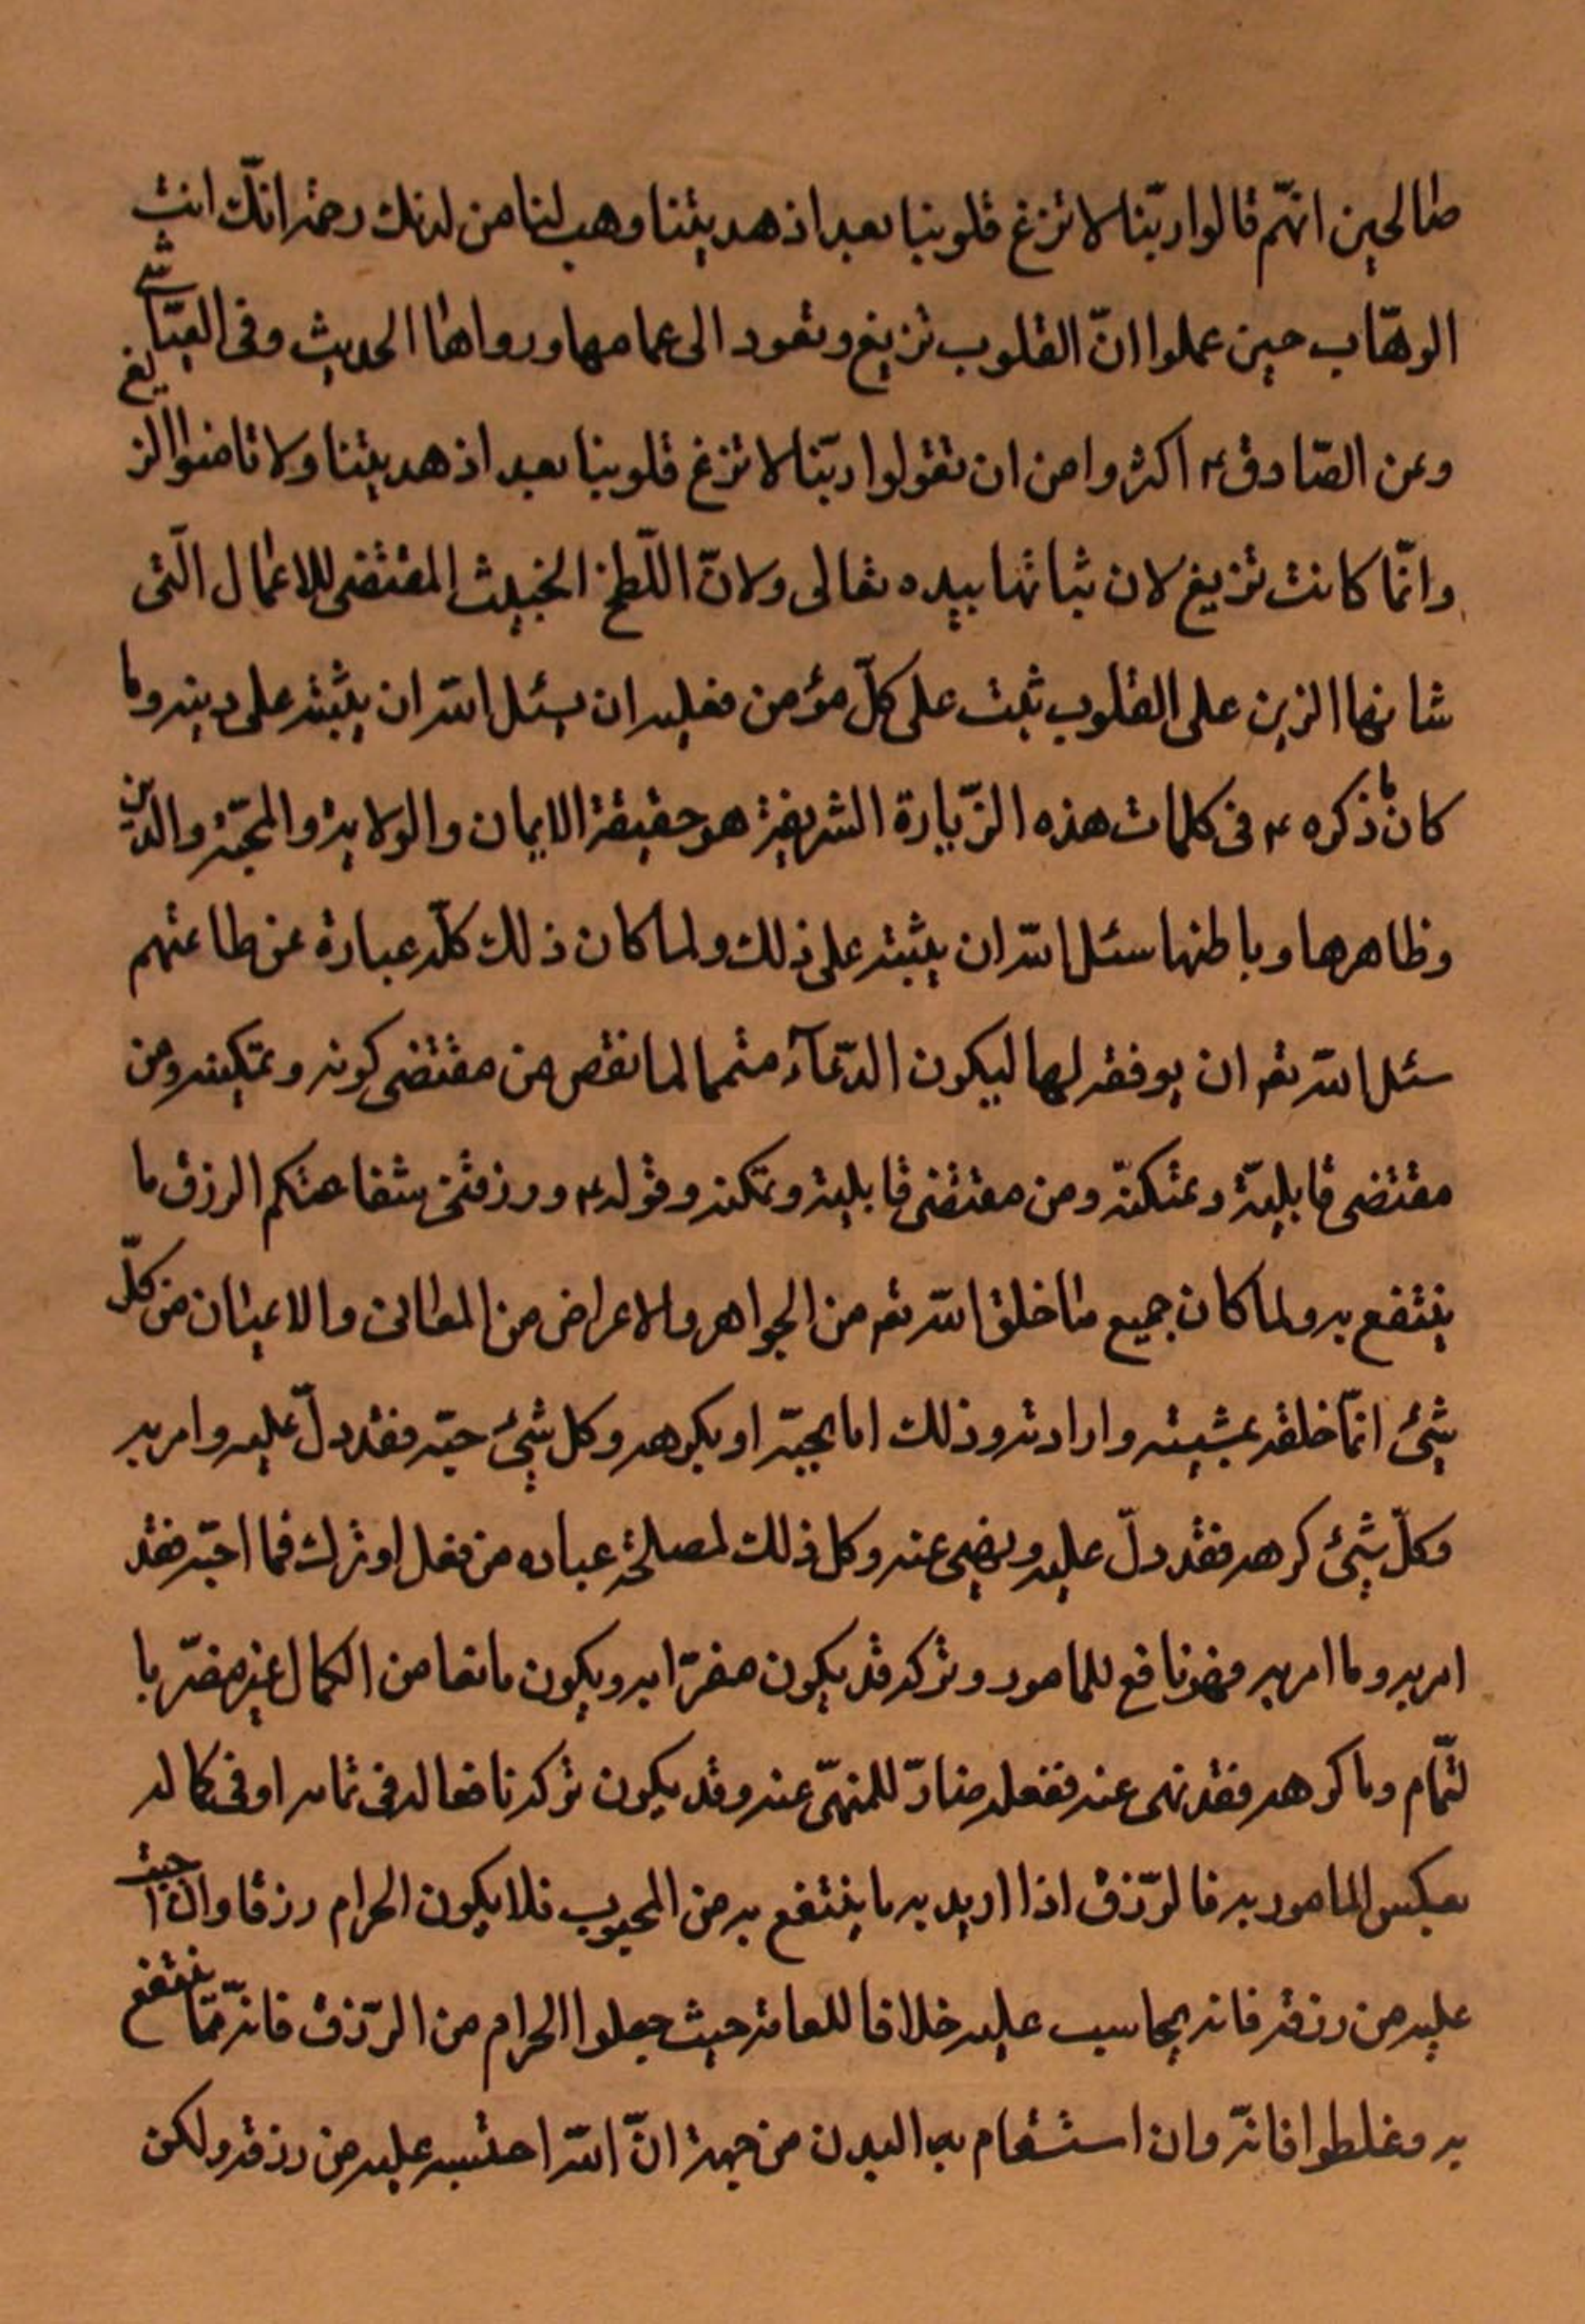 صالحين انهّم قالوا ربّنا لا تزغ قلوبنا بعد اذ هديتنا وهب لنا من لدنك رحمة انّك انت
الوهّاب حين علموا انّ القلوب تزيغ وتعود الى عماها ورداها الحديث وفى العيّاشى
وعن الصّادق ع اكثروا من ان تقولوا ربّنا لا تزغ قلوبنا بعد اذ هديتنا ولا تامنوا الزيغ
وانّما كانت تزيغ لان ثباتها بيده تعالى ولانّ اللّطخ الخبيث المقتضى للاعمال الّتى
شانها الزين على القلوب ثبت على كلّ مؤمن فعليه ان يسئل الله ان يثبّته على دينه ولما
كان ما ذكره ع فى كلمات هذه الزّيارة الشريفة هو حقيقة الايمان والولاية والمحبّة والدّين
وظاهرها وباطنها سئل الله ان يثبته على ذلك ولما كان ذلك كلّه عبارة عن طاعتهم
سئل الله تع ان يوفقه لها ليكون الدّعآء متمما لما نقص من مقتضى كونه وتمكينه ومن
مقتضى قابليّة وتمكنّه ومن مقتضى قابلية وتمكنه وقوله ع ورزقنى شفاعتكم الرزق ما
ينتفع به ولما كان جميع ما خلق الله تع من الجواهر والاعراض من المعانى والاعيان من كلّ
شئ انّما خلقه بمشيته وارادته وذلك اما يحبّه او يكرهه وكل شئ حبّه فقد دلّ عليه وامر به
وكلّ شئ كرهه فقد دلّ عليه ونهى عنه وكل ذلك لمصلحة عباده من فعل او ترك فما احبّه فقد
امر به وما امر به فهو نافع للمامور وتركه قد يكون مضرّا به ويكون مانعا من الكمال غير مضرّ با
لتّمام وما كرهه فقد نهى عنه ففعله ضارّ للمنهّى عنه وقد يكون تركه نافعا له فى تمامه او فى كماله
بعكس المامور به فالرّزق اذا اريد به ما ينتفع به من المحبوب فلا يكون الحرام رزقا وان احتسب
عليه من رزقه فانه يحاسب عليه خلافا للعامة حيث جعلوا الحرام من الرّزق فانّه ممّا ينتفع
به وغلطوا فانّه وان استقام به البدن من جهة انّ الله احتسبه عليه من رزقه ولكن